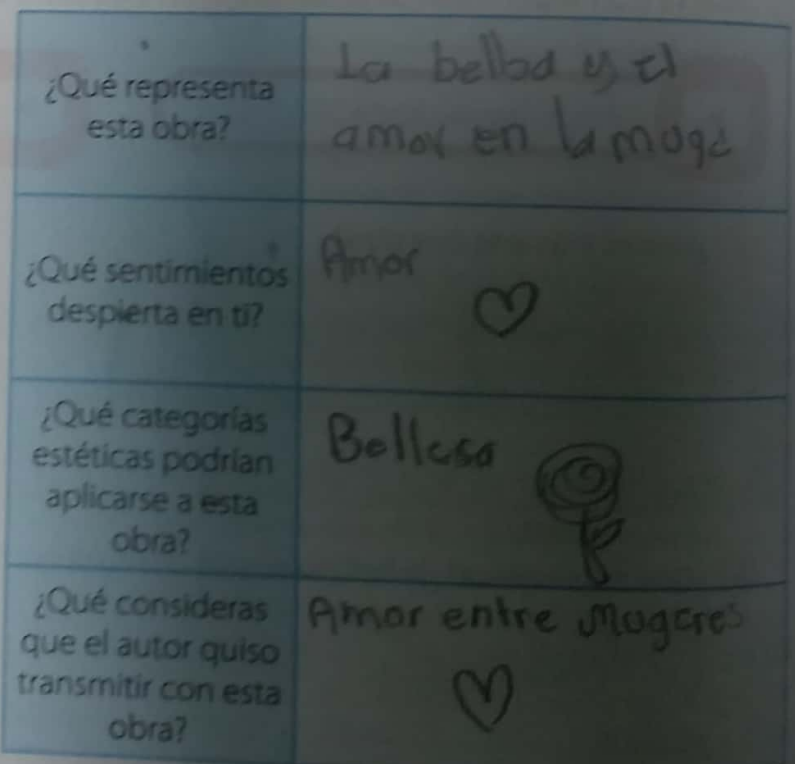 ¿Qué representa
esta obra?
La bellsa y el
amor en la muge
¿Qué sentimientos
despierta en ti?
Amor
¿Qué categorías
estéticas podrían
aplicarse a esta
obra?
Bellesa
¿Qué consideras
que el autor quiso
transmitir con esta
obra?
Amor entre Mugeres